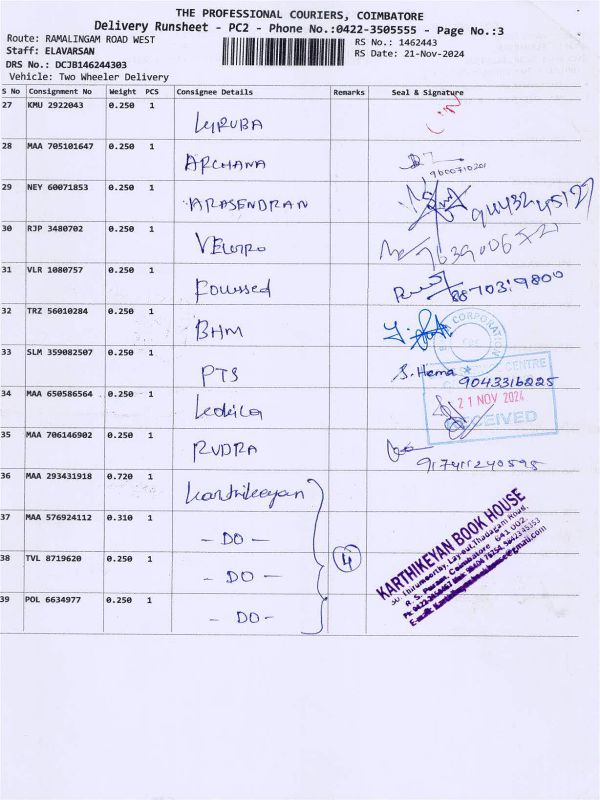 THE PROFESSIONAL COURIERS, COIMBATORE
Delivery Runsheet - PC2 - Phone No.:0422-3505555 - Page No.:3
Route: RAMALINGAM ROAD WEST
Staff: ELAVARSAN
DRS No.: DCJB146244303
Vehicle: Two Wheeler Delivery
RS No.: 1462443
RS Date: 21-Nov-2024
S No Consignment No Weight PCS Consignee Details Remarks Seal & Signature
27 KMU 2922043 0.250 1
28 MAA 705101647 0.250 1 ARCHANA
9600710201
29 NEY 60071853 0.250 1 ARASENDRAN
30 RJP 3480702 0.250 1
31 VLR 1080757 0.250 1
8870319800
32 TRZ 56010284 0.250 1 BHM
CORPORATION
33 SLM 359082507 0.250 1 PTS S. Hema 9043316225
CENTRE
34 MAA 650586564 0.250 1 Kokila
21 NOV 2024
RECEIVED
35 MAA 706146902 0.250 1 RUDRA
917411240595
36 MAA 293431918 0.720 1 Karthikeyan
37 MAA 576924112 0.310 1 - DO -
38 TVL 8719620 0.250 1 - DO -
4
39 POL 6634977 0.250 1 - DO -
KARTHIKEYAN BOOK HOUSE
50, Thirumoorthy Layout, Thadagam Road,
R. S. Puram, Coimbatore - 641 002